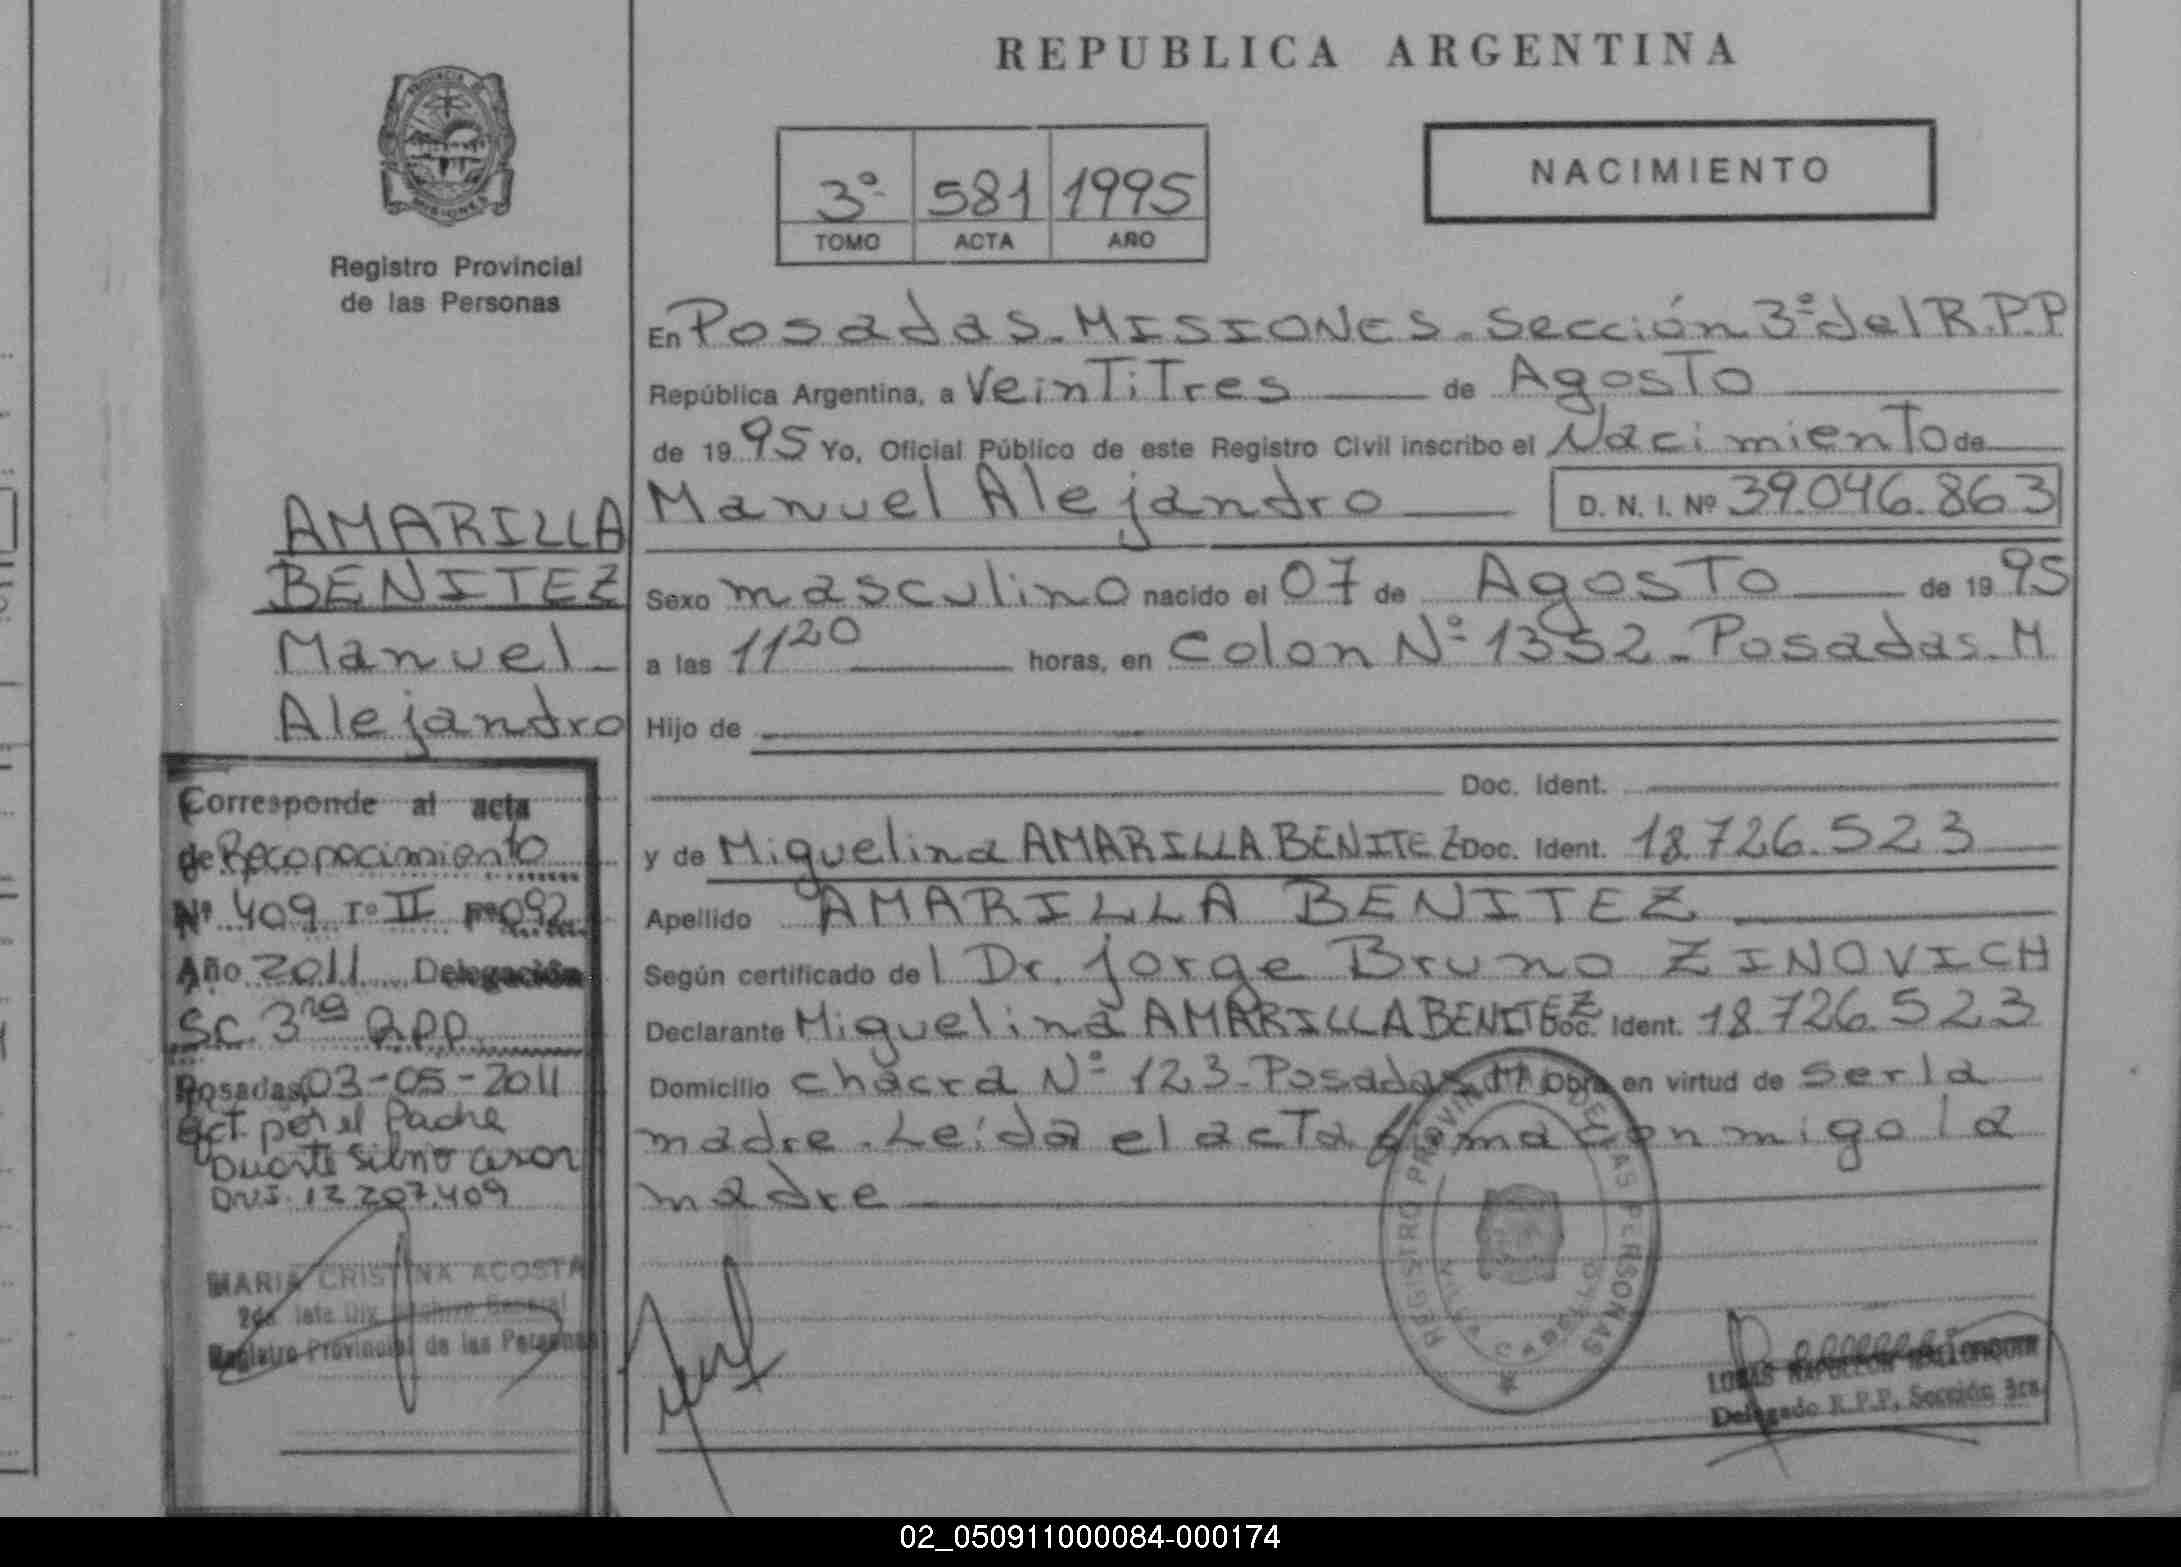 PROVINCIA DE
MISIONES
Registro Provincial
de las Personas
AMARILLA
BENITEZ
Manuel
Alejandro
Corresponde al acta
de Reconocimiento
Nº 409 Tº II Fº 092
Año 2011 Delegación
Sc. 3ra RPP
Posadas, 03-05-2011
Act. por el Padre
Duarte Silvio Cesar
D.N.I. 12.207.409
MARIA CRISTINA ACOSTA
2da. Jefe Div. Archivo General
Registro Provincial de las Personas
REPUBLICA ARGENTINA
3º 581 1995
TOMO ACTA AÑO
NACIMIENTO
En Posadas-MISIONES-Sección 3º del R.P.P
República Argentina, a VeinTiTres de AgosTo
de 1995 Yo, Oficial Público de este Registro Civil inscribo el NacimienTo de
Manuel Alejandro D. N. I. Nº 39.046.863
Sexo masculino nacido el 07 de AgosTo de 1995
a las 11 20 horas, en Colon Nº 1352-Posadas-M
Hijo de
Doc. Ident.
y de Miguelina AMARILLA BENITEZ Doc. Ident. 18.726.523
Apellido AMARILLA BENITEZ
Según certificado del Dr. Jorge Bruno ZINOVICH
Declarante Miguelina AMARILLA BENITEZ Doc. Ident. 18.726.523
Domicilio chacra Nº 123-Posadas-M Obra en virtud de ser la
madre. Leída el acTa firma conmigo la
madre
REGISTRO PROVINCIAL DE LAS PERSONAS
Delegado R.P.P. Sección 3ra.
02_050911000084-000174